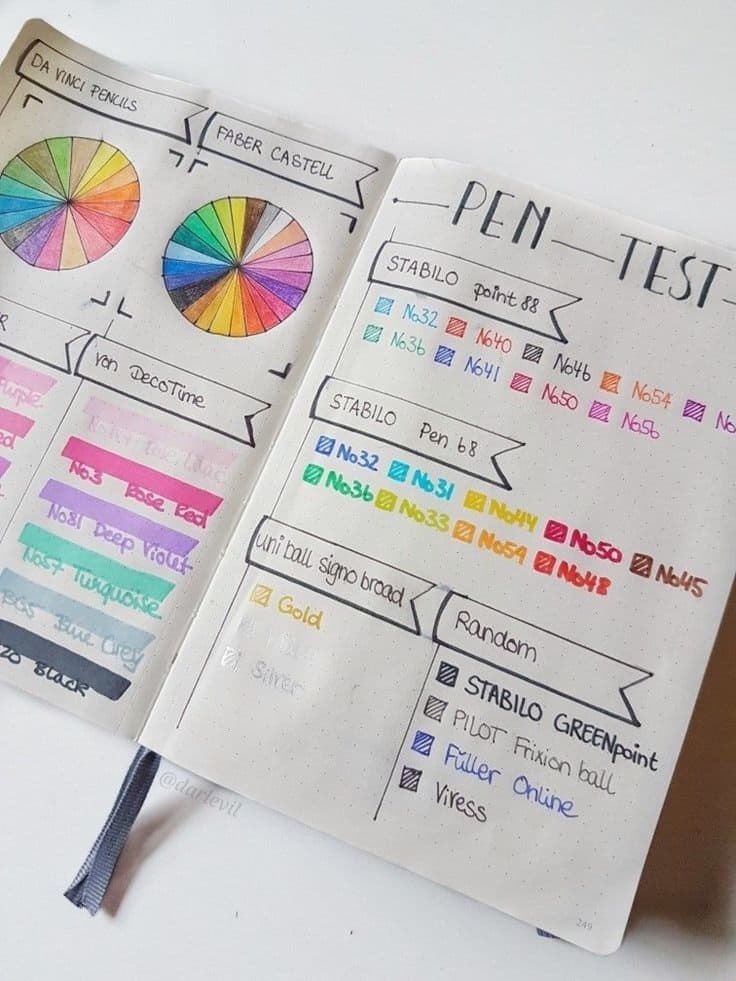 DA VINCI PENCILS
FABER CASTELL
von DecoTime
No3 Rose Red
No81 Deep Violet
No57 Turquoise
BG5 Blue Grey
Black
PEN TEST
STABILO point 88
No32 No40 No46 No54
No36 No41 No50 No56
STABILO Pen 68
No32 No31 No44 No50 No45
No36 No33 No54 No48
uni ball signo broad
Gold
Silver
Random
STABILO GREENpoint
PILOT Frixion ball
Füller Online
Viress
@darlevil
249